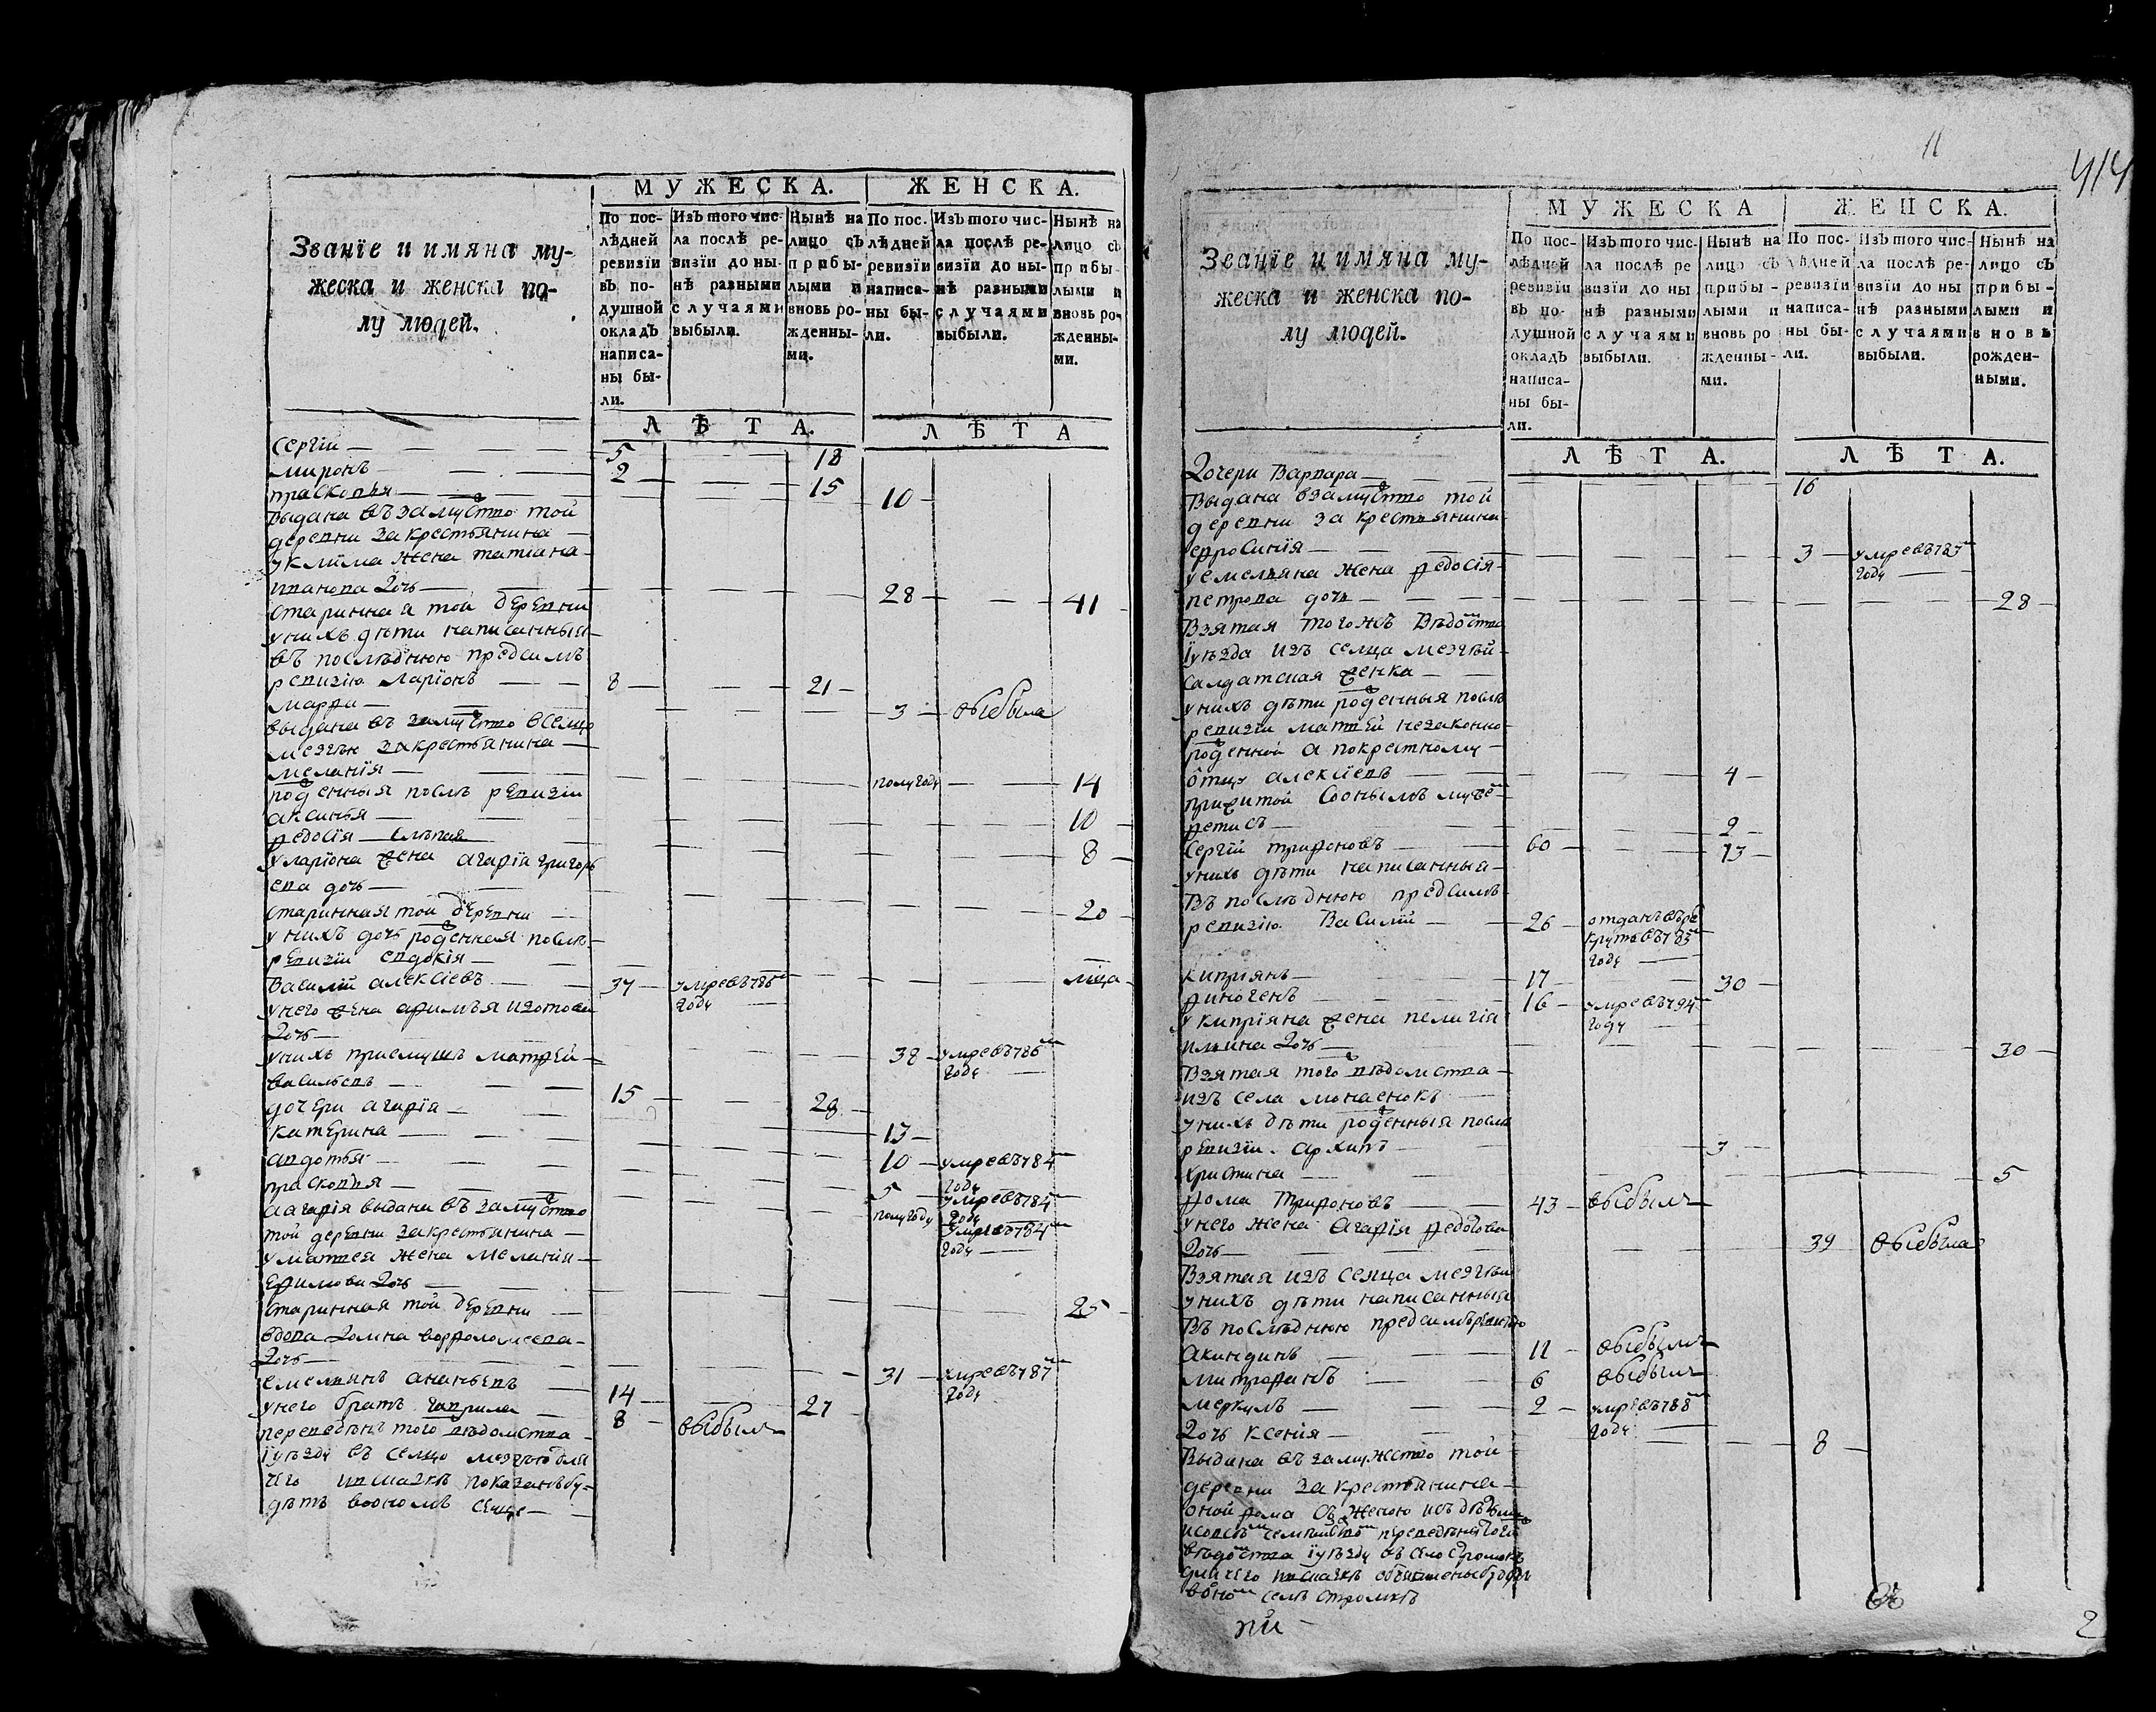 МУЖЕСКА.
ЖЕНСКА.
Званїе и имяна му-
жеска и женска по-
лу людей.
По пос-
лѣдней
ревизїи
въ по-
душной
окладъ
написа-
ны бы-
ли.
Изъ того чис-
ла послѣ ре-
визїи до ны-
нѣ разными
случаями
выбыли.
Нынѣ на
лицо съ
прибы-
лыми и
вновь ро-
жденны-
ми.
По пос-
лѣдней
ревизїи
написа-
ны бы-
ли.
Изъ того чис-
ла послѣ ре-
визїи до ны-
нѣ разными
случаями
выбыли.
Нынѣ на
лицо съ
прибы-
лыми и
вновь ро-
жденны-
ми.
ЛѢТА.
ЛѢТА
Сергїй 5 18
миронъ 2 15
прасковья 10
выдана въ замуство той
деревни за крестьянина
у клима жена татїана
иванова дочь 28 41
старинная той деревни
у нихъ дѣти написанныя
въ последнюю предсимъ
ревизїю ларїонъ 8 21
марфа 3 выбыла
выдана въ замуство в селцо
за крестьянина
меланїя полугоду 14
рожденныя послѣ ревизїи
аксинья 10
федосїя слѣпая 8
у ларїона жена агафїя григорь
ева дочь 20
старинная той деревни
у нихъ дочь рожденная послѣ
ревизїи евдокїя мѣца
василїй алексѣевъ 37 умре въ 786
году
у него жена афимья изотова
дочь 38 умре въ 786
году
у нихъ приемышъ матфей
васильевъ 15 28
дочери агафїя 13
катерина 10 умре въ 784
году
авдотья 5 умре въ 784
году
прасковья полугоду умре въ 784
году
агафїя выдана въ замуство
той деревни за крестьянина
у матфея жена меланїя
ефимова дочь 25
старинная той деревни
вдова домна ворфоломеева
дочь 31 умре въ 787
году
емельянъ ананьевъ 14 27
у него братъ гаврила 8 выбылъ
переведенъ того вѣдомства
уѣзду въ селцо для
чего показанъ бу-
детъ в ономъ селце
11
414
МУЖЕСКА
ЖЕНСКА.
Званїе и имяна му-
жеска и женска по-
лу людей.
По пос-
лѣдней
ревизїи
въ по-
душной
окладъ
написа-
ны бы-
ли.
Изъ того чис-
ла послѣ ре
визїи до ны
нѣ разными
случаями
выбыли.
Нынѣ на
лицо съ
прибы-
лыми и
вновь ро
жденны-
ми.
По пос-
лѣдней
ревизїи
написа-
ны бы-
ли.
Изъ того чис-
ла послѣ ре-
визїи до ны
нѣ разными
случаями
выбыли.
Нынѣ на
лицо съ
прибы-
лыми и
вновь
рожден-
ными.
ЛѢТА.
ЛѢТА.
Дочери Варвара 16
Выдана взамуство той
деревни за крестьянина
ефросинїя 3 умре въ 787
году
у емельяна жена федосїя
петрова дочь 28
Взятая тогожъ
уѣзда изъ селца
салдатская женка
у нихъ дѣти рожденныя послѣ
ревизїи матвей незаконно
рожденной а покрестному
отцу алексѣевъ 4
прижитой
фетисъ 2
Сергїй трифоновъ 60 73
у нихъ дѣти написанныя
въ последнюю предсимъ
ревизїю Василїй 26 отданъ въ ре
круты въ 785
году
киприянъ 17 30
финогенъ 16 умре въ 794
году
у киприяна жена пелагїя
ильина дочь 30
Взятая того вѣдомства
изъ села
у нихъ дѣти рожденныя послѣ
ревизїи архипъ 3
христина 5
фома трифоновъ 43 выбылъ
у него жена агафїя федотова
дочь 39 выбыла
Взятая изъ селца
у нихъ дѣти написанныя
въ последнюю предсимъ ревизїю
акиндинъ 11 выбылъ
митрофанъ 6 выбылъ
меркулъ 2 умре въ 788
году
дочь ксенїя 8
Выдана въ замужство той
деревни за крестьянина
оной фома съ женою
переведены
уѣзду въ село
для чего
в оном селѣ
2